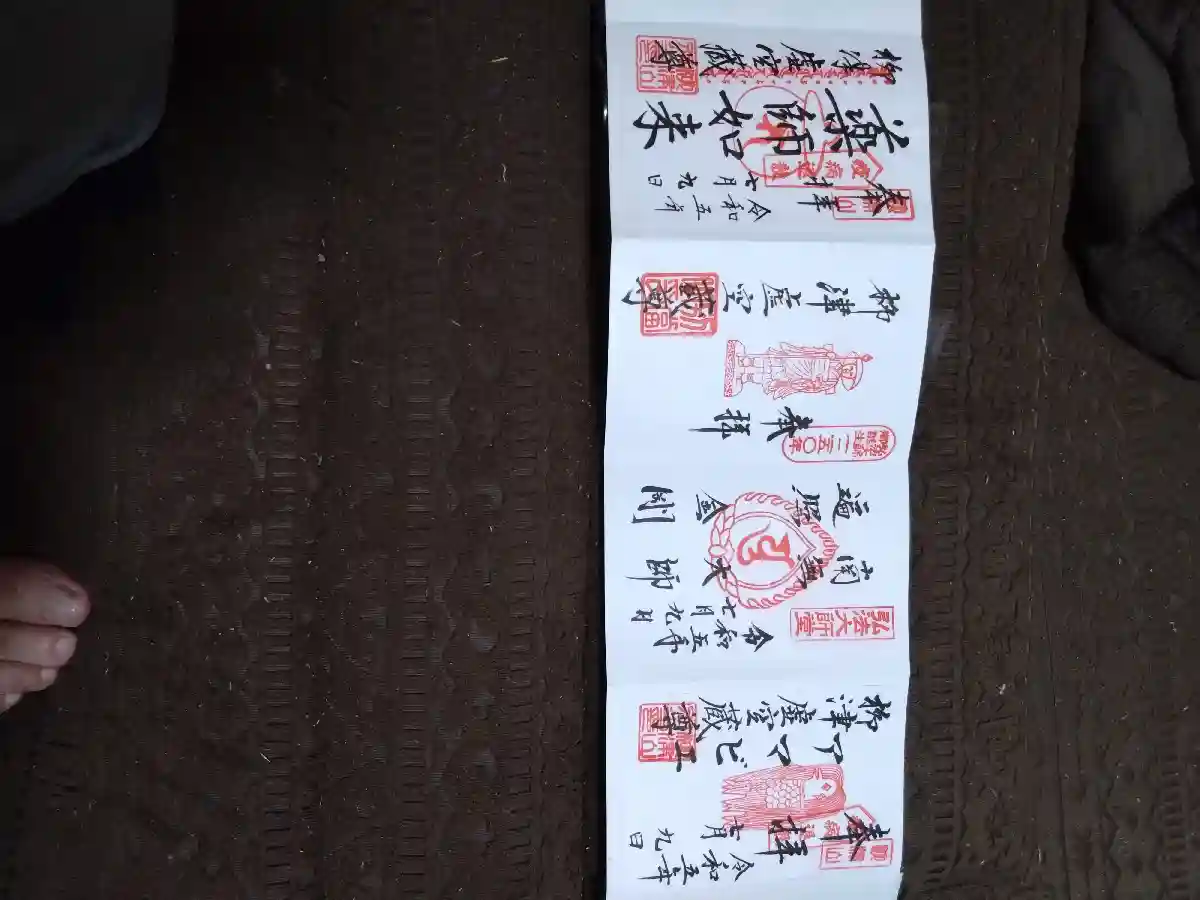 令和五年
七月九日
奉拝
アマビエ
柳津虚空蔵尊
令和五年
七月九日
弘法大師堂
南無大師
遍照金剛
奉拝
一二五〇年
柳津虚空蔵尊
令和五年
七月九日
奉拝
疫病退散
薬師如来
柳津虚空蔵尊